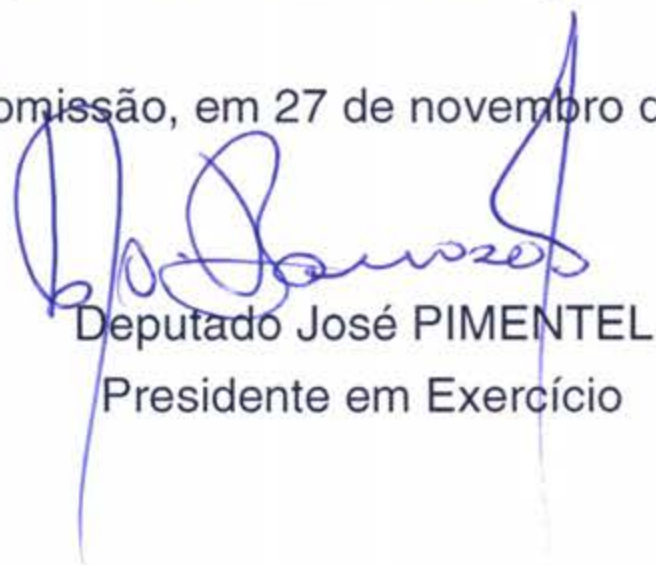 omissão, em 27 de novembro d
Deputado José PIMENTEL
Presidente em Exercício